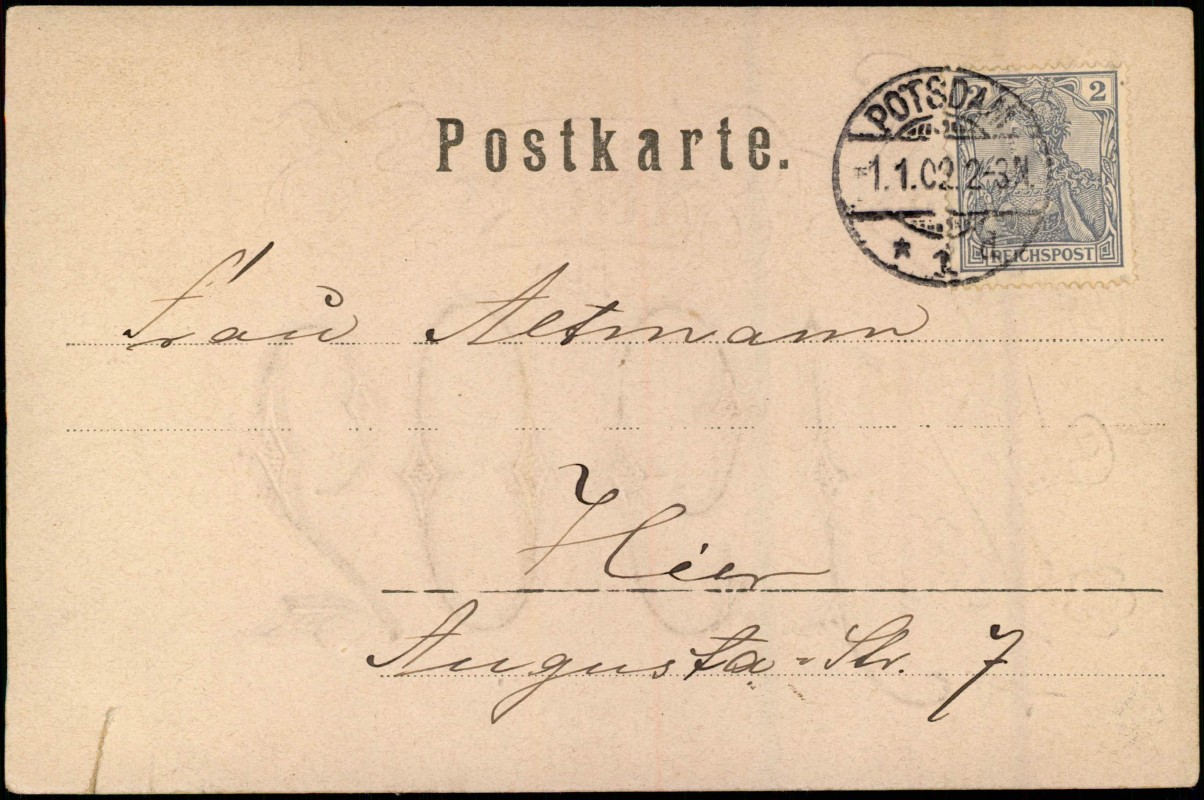 Postkarte.
POTSDAM
1.1.02.2-3N.
* 1 d
2 2
REICHSPOST
Frau Altmann
Hier
Augusta-Str. 7